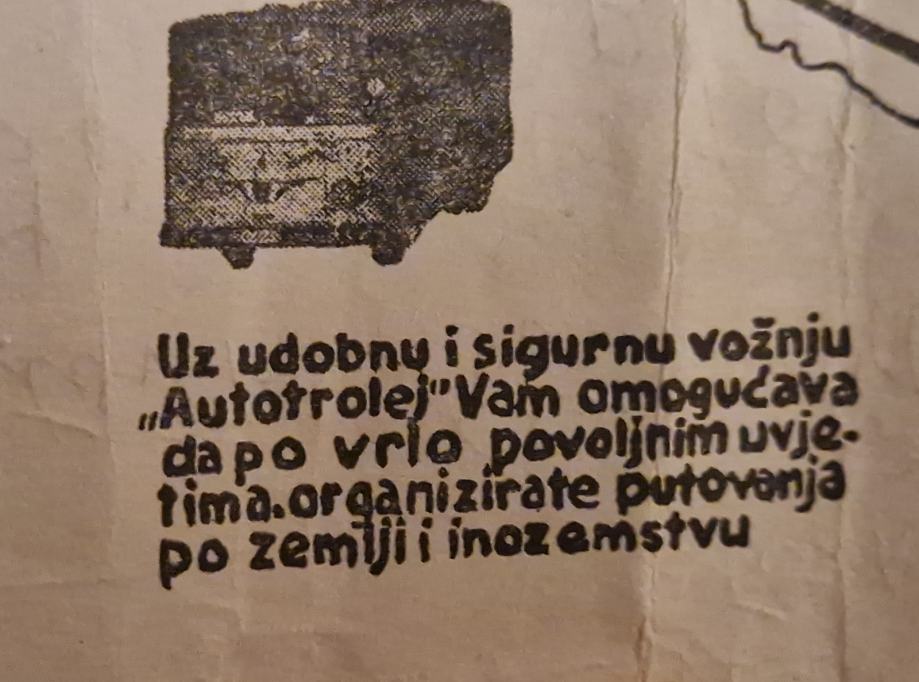 Uz udobnu i sigurnu vožnju
„Autotrolej" Vam omogućava
da po vrlo povoljnim uvje-
tima.organizirate putovanja
po zemlji i inozemstvu